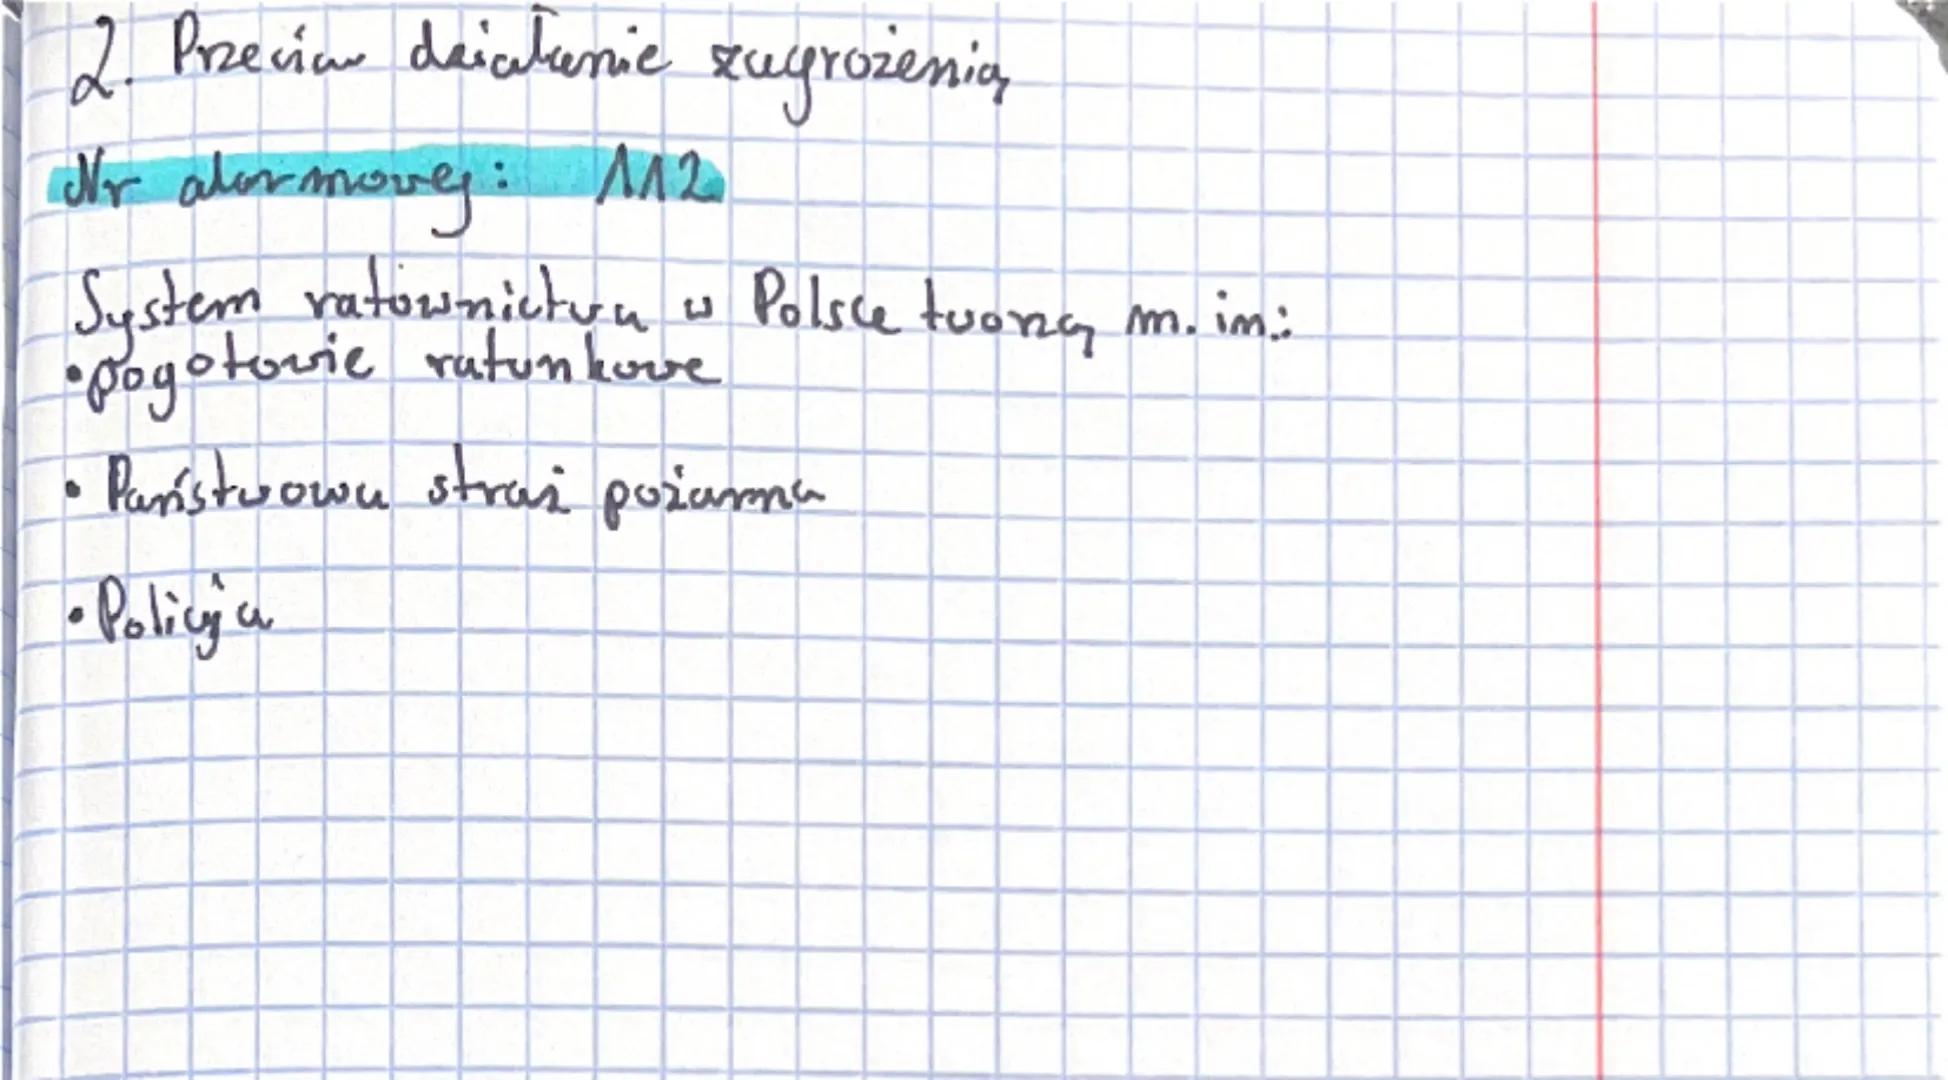 2. Przeciw działanie zagrożenią
Nr alarmowey: 112
System ratownictwa w Polsce tworzą m. in.:
• pogotowie ratunkowe
• Państwowa straż pożarna
• Policja